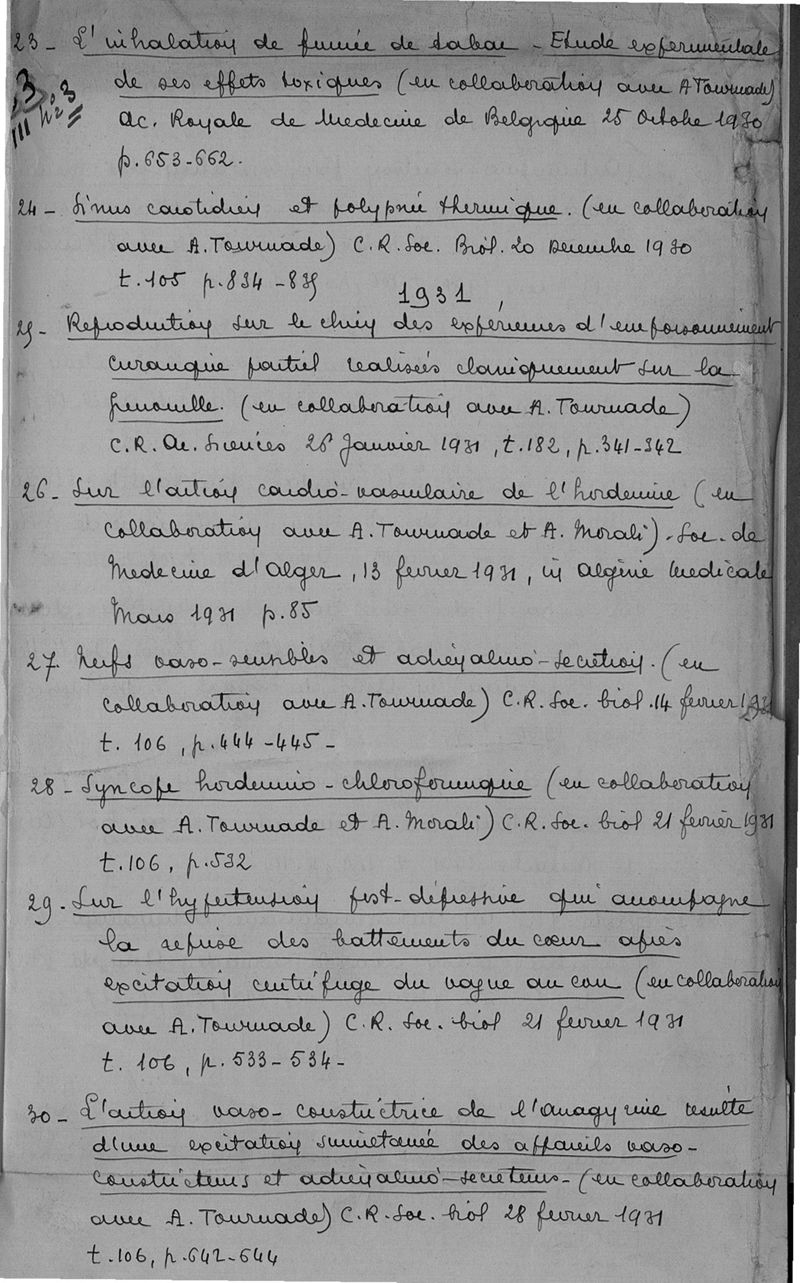 23 - L'inhalation de fumée de tabac - Etude experimentale
de ses effets toxiques (en collaboration avec A Tournade)
Ac. Royale de Medecine de Belgique 25 Octobre 1930
p. 653-662.
III n° 3
24 - Sinus carotidien et polypnée thermique. (en collaboration
avec A. Tournade) C.R. Soc. Biol. 20 Decembre 1930
t. 105 p. 834 - 835
1931
25 - Reproduction sur le chien des expériences d'empoisonnement
curarique partiel realisées classiquement sur la
grenouille. (en collaboration avec A. Tournade)
C.R. Ac. Sciences 26 Janvier 1931, t. 182, p. 341-342
26 - Sur l'action cardio-vasculaire de l'hordenine (en
collaboration avec A. Tournade et A. Morali) - Soc. de
Medecine d'Alger, 13 fevrier 1931, in Algérie Medicale
Mars 1931 p. 85
27. Nerfs vaso-sensibles et adrénalino-secretion. (en
collaboration avec A. Tournade) C.R. Soc. biol. 14 fevrier 1931
t. 106, p. 444-445 -
28 - Syncope hordenino - chloroformique (en collaboration
avec A. Tournade et A. Morali) C.R. Soc. biol 21 fevrier 1931
t. 106, p. 532
29. Sur l'hypertension post-dépressive qui accompagne
la reprise des battements du cœur après
excitation centrifuge du vague au cou (en collaboration
avec A. Tournade) C.R. Soc. biol 21 fevrier 1931
t. 106, p. 533 - 534 -
30 - L'action vaso-constrictrice de l'anagyrine resulte
d'une excitation simultanée des appareils vaso-
constricteurs et adrénalino-secreteurs - (en collaboration
avec A. Tournade) C.R. Soc. biol 28 fevrier 1931
t. 106, p. 642-644